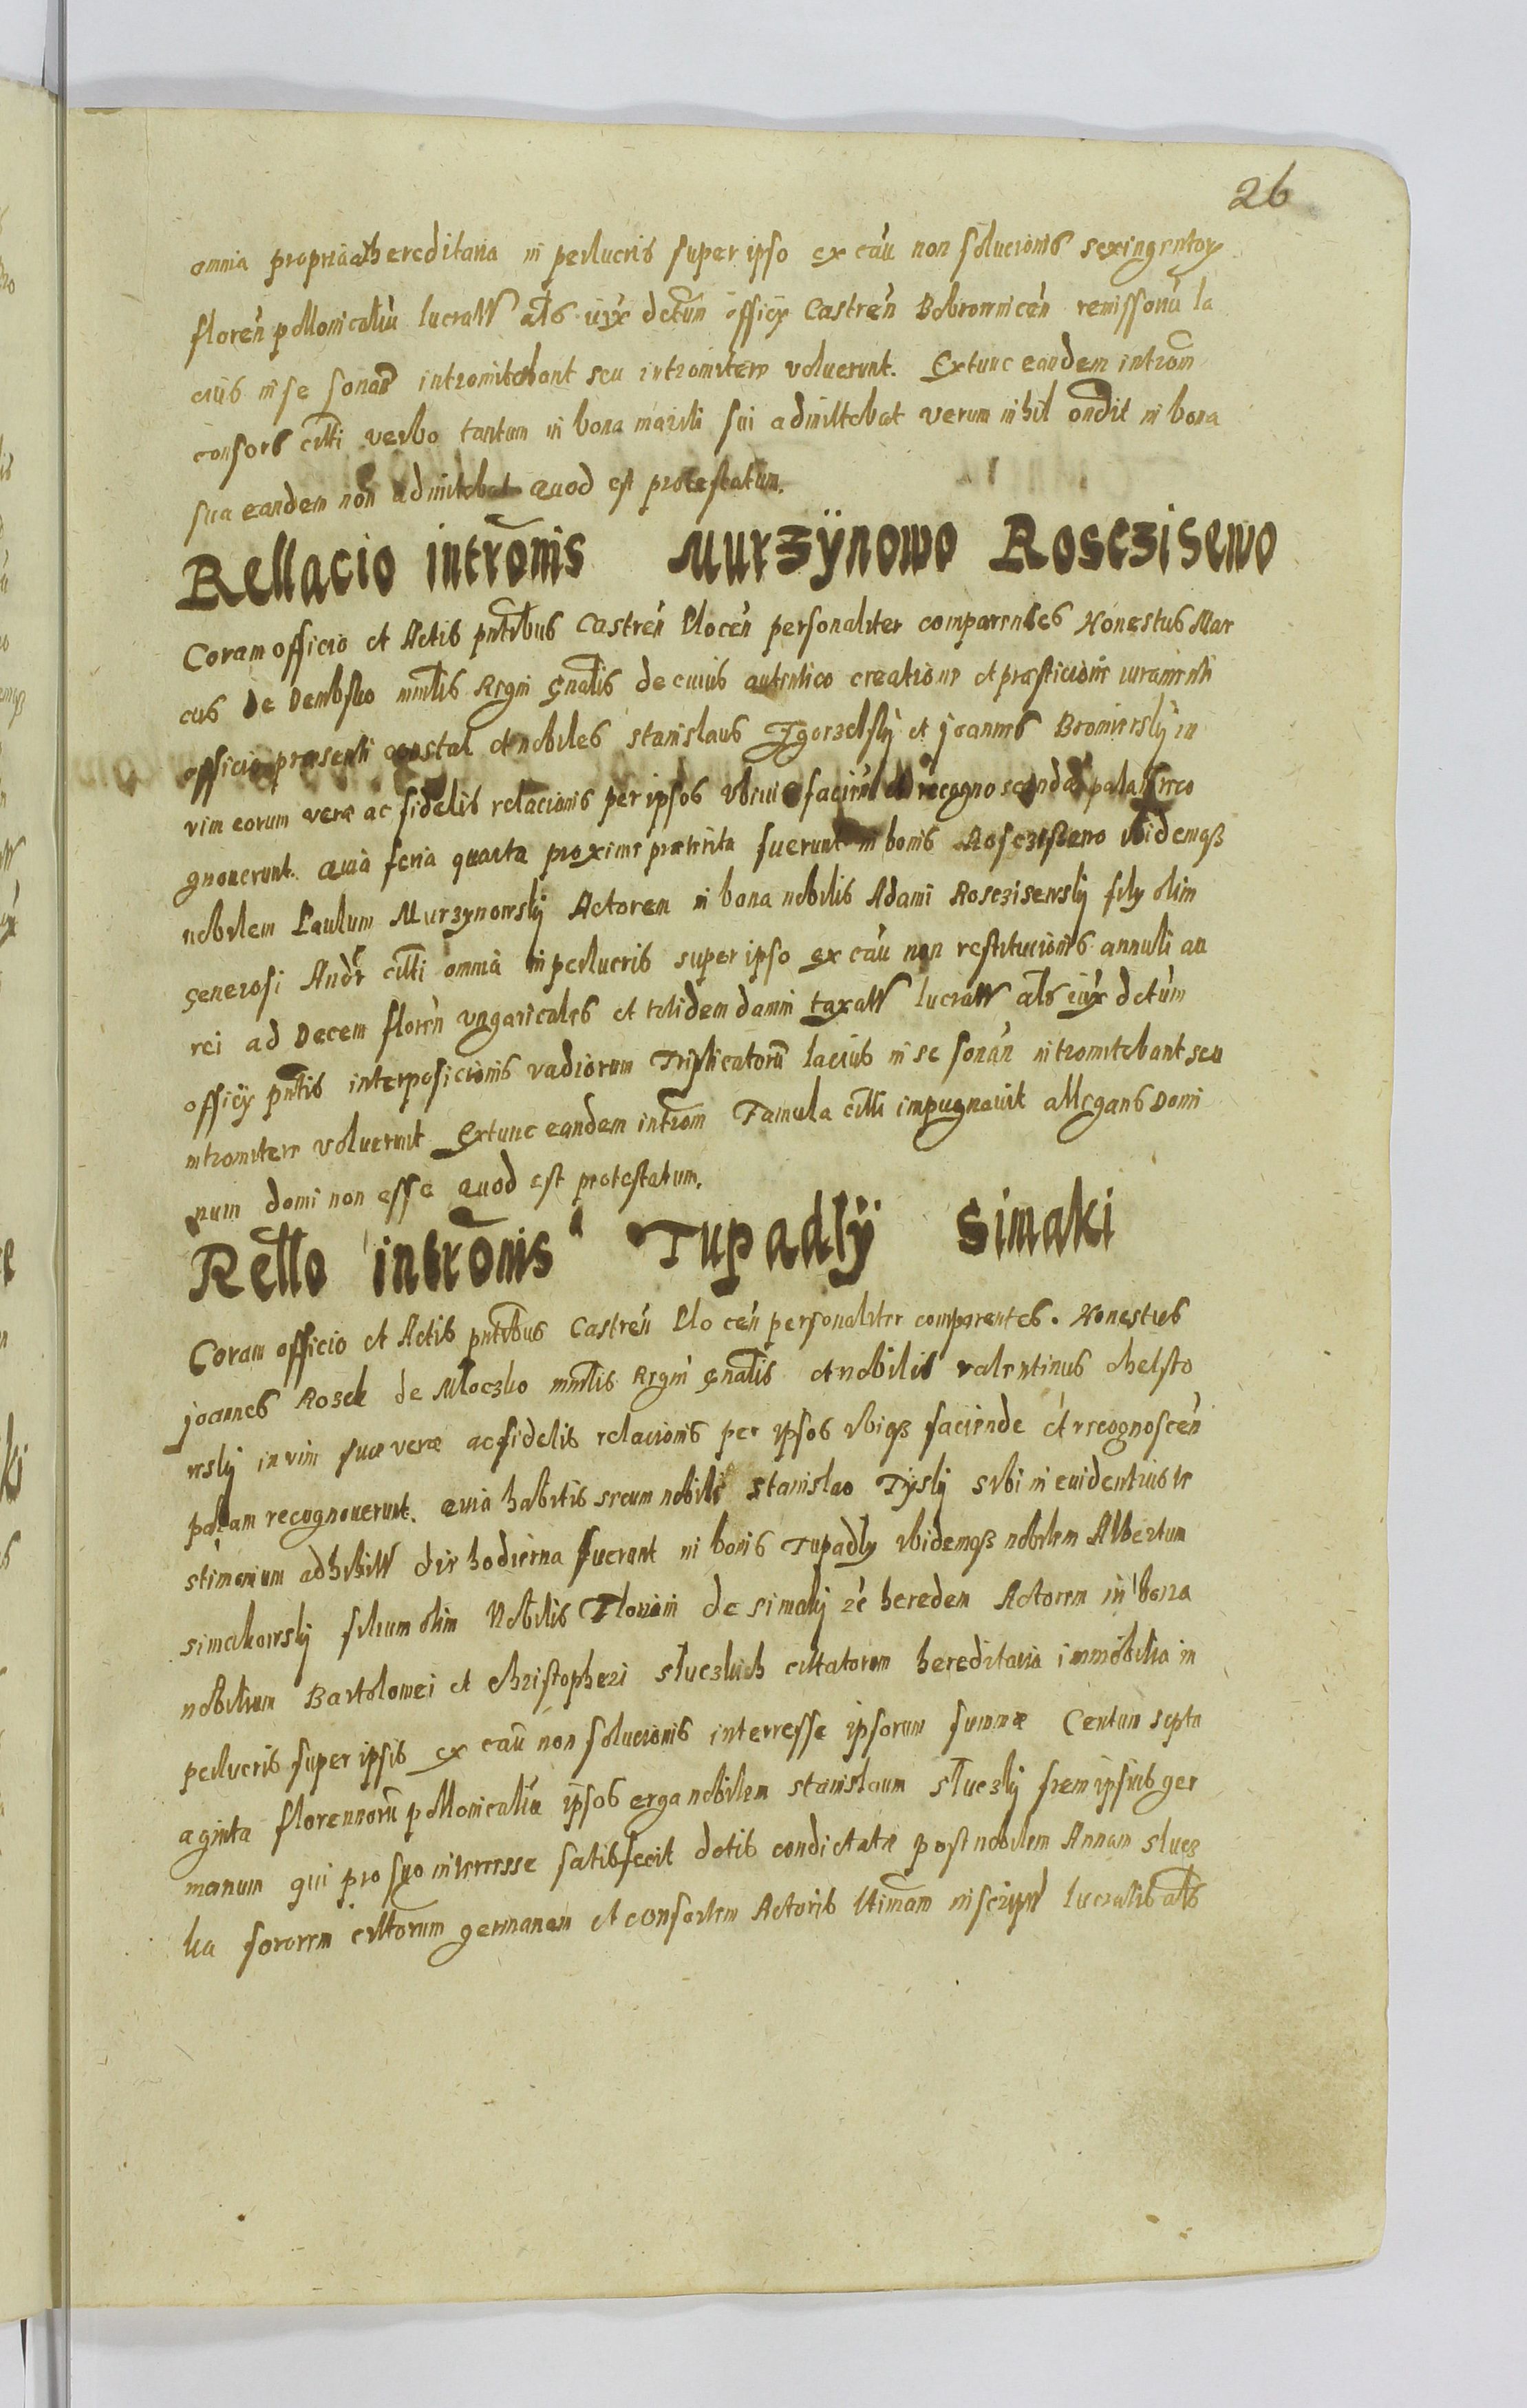 26
omnia propria et hereditaria in perlucris super ipso ex cau non solucionis sexingentor
floren pollonicaliu lucratt als iux dctum officy Castren Bobrownicen remissonu la
cius in se sonan intromitebant seu intromitere voluerunt. Extunc eandem introm
consors citti verbo tantum in bona mariti sui admittebat verum nihil ondit in bona
sua eandem non admitebat quod est protestatum.
Rellacio intromis Murzÿnowo Rosczisewo
Coram officio et Actis pntibus Castren Plocen personaliter comparentes Honestus Mar
cus de Dembsko mntlis Regni gnalis de cuius autentico creatione et præsticione iuramenti
officio præsenti constat et nobiles Stanislaus Zgorzelsky et Joannes Bromiersky in
vim eorum veræ ac fidelis relacionis per ipsos ubivis faciend et recognoscendæ palam reco
gnouerunt. Quia feria quarta proxime præterita fuerunt in bonis Rosczisewo ibidemqß
nobilem Paulum Murzynowsky Actorem in bona nobilis Adami Rosczisewsky fily olim
generosi Andr citti omnia in perlucris super ipso ex cau non restitucionis annuli au
rei ad decem floren ungaricales et totidem damni taxatt lucratt als iux dctum
officy pntis interposicionis vadiorum Triplicatoru lacius in se sonan intromitebant seu
intromitere voluerunt Extunc eandem introm Famula citti impugnauit allegans domi
num domi non esse quod est protestatum.
Rello intromis Tupadlÿ Simaki
Coram officio et Actis pntibus Castren Plocen personaliter comparentes. Honestus
Joannes Rosek de Mloczko mntlis Regni gnalis et nobilis valentinus chelsto
wsky in vim suæ veræ ac fidelis relacionis per ipsos ubiqß faciende et recognoscen
palam recognouerunt. Quia habitis secum nobili Stanislao Tysky sibi in euidentius te
stimonium adhibitt die hodierna fuerunt in bonis Tupadly ibidemqß nobilem Albertum
Simakowsky filium olim Nobilis Floriani de simaky ze heredem Actorem in bona
nobilium Bartolomei et Christopheri sluczkich citatorum hereditaria immobilia in
perlucris super ipsis ex cau non solucionis interresse ipsorum summæ Centum septu
aginta florennoru pollonicaliu ipsos erga nobilem stanislaum sluczky frem ipsius ger
manum qui pro suo interresse satisfecit dotis condictatæ post nobilem Annam slucz
ka sororem cittorum germanam et consortem Actoris ltimam inscript lucratis als